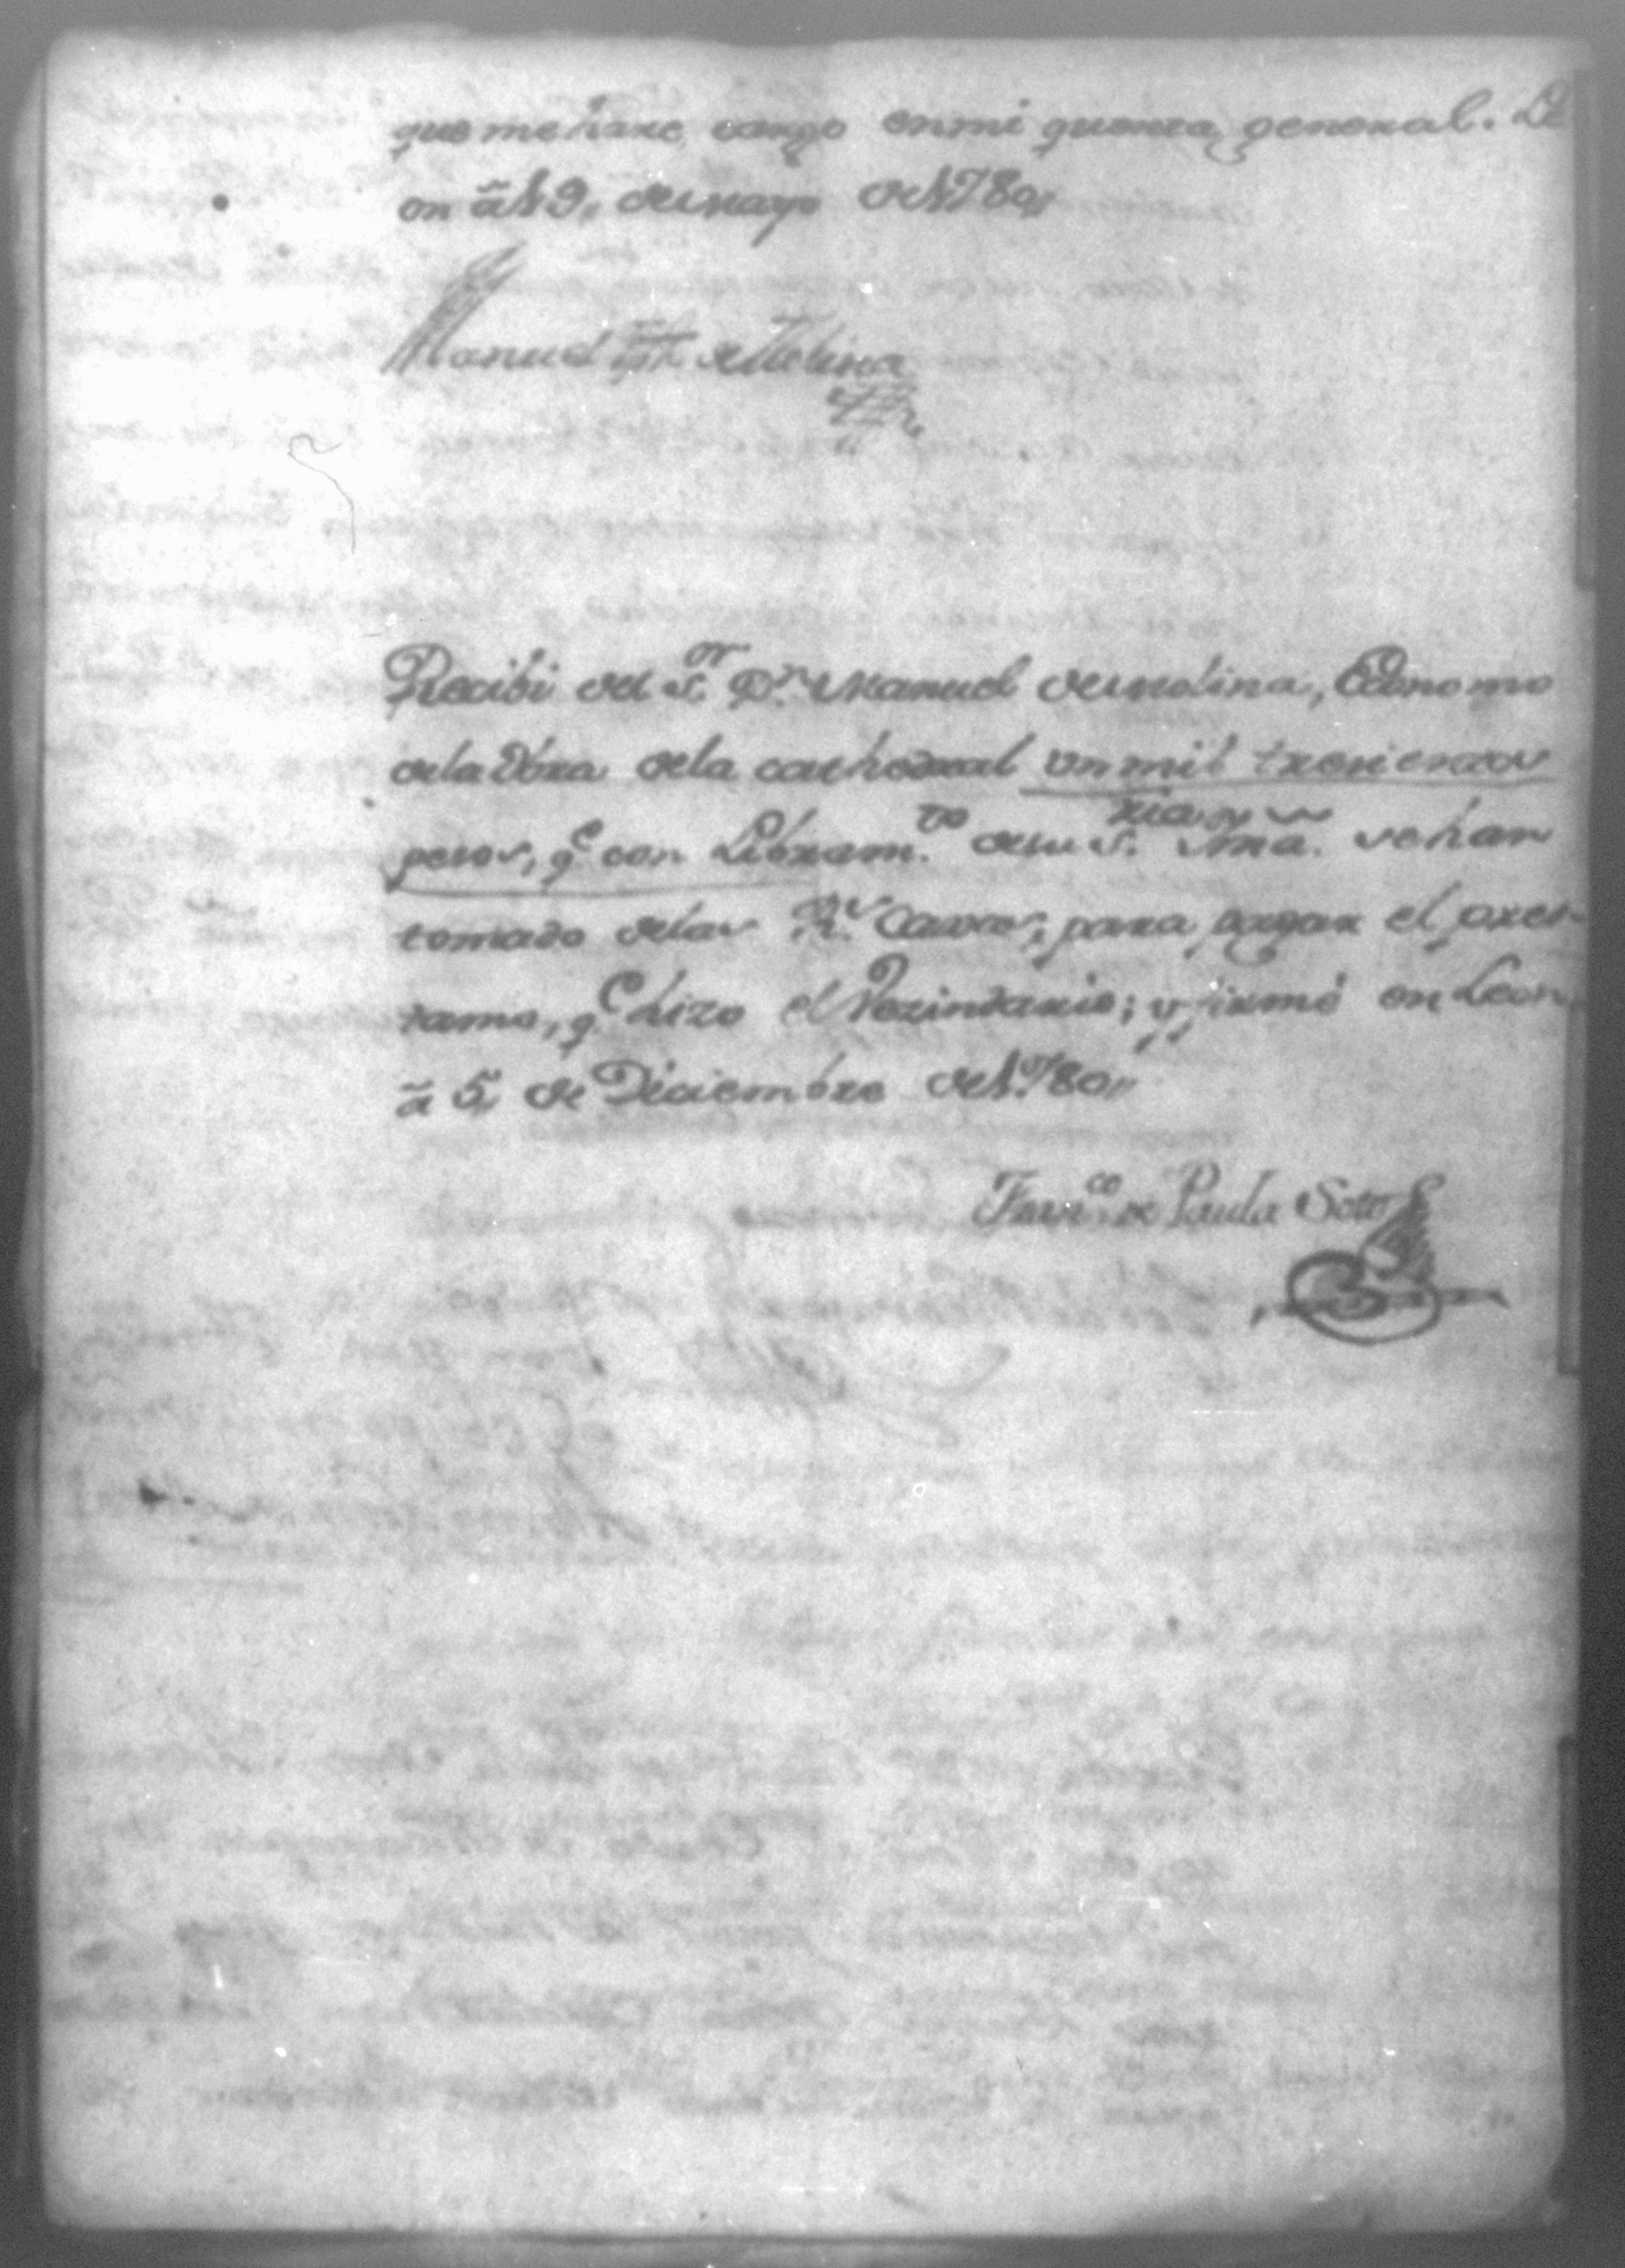 que me hare cargo en mi quenta general. Le
on â 19,, de mayo de 1780,,
Manuel de Molina
Recibi del S.or D.n Manuel de Molina, Econo mo
dela Obra dela cathedral un mil trescientos
pesos, q.e con Libram.to de su S. Yma. se han
tomado delas R.s Caxas, para pagar el pres-
tamo, q.e hizo el Vezindario; y firmé en Leon,
â 5,, de Diciembre de 1780,,
Fran.co de Paula Soto